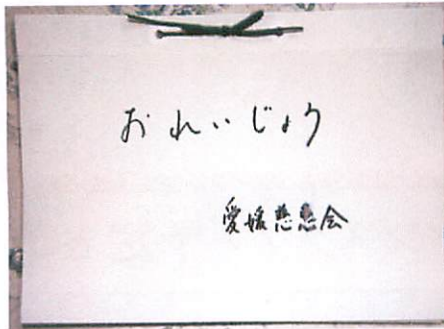 おれいじょう
愛媛慈恵会